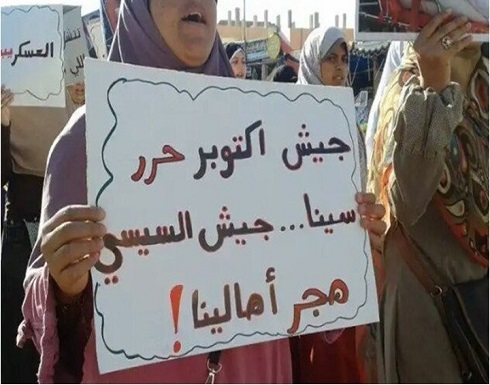 العسكر
جيش اكتوبر حرر
سينا... جيش السيسي
هجر أهالينا!